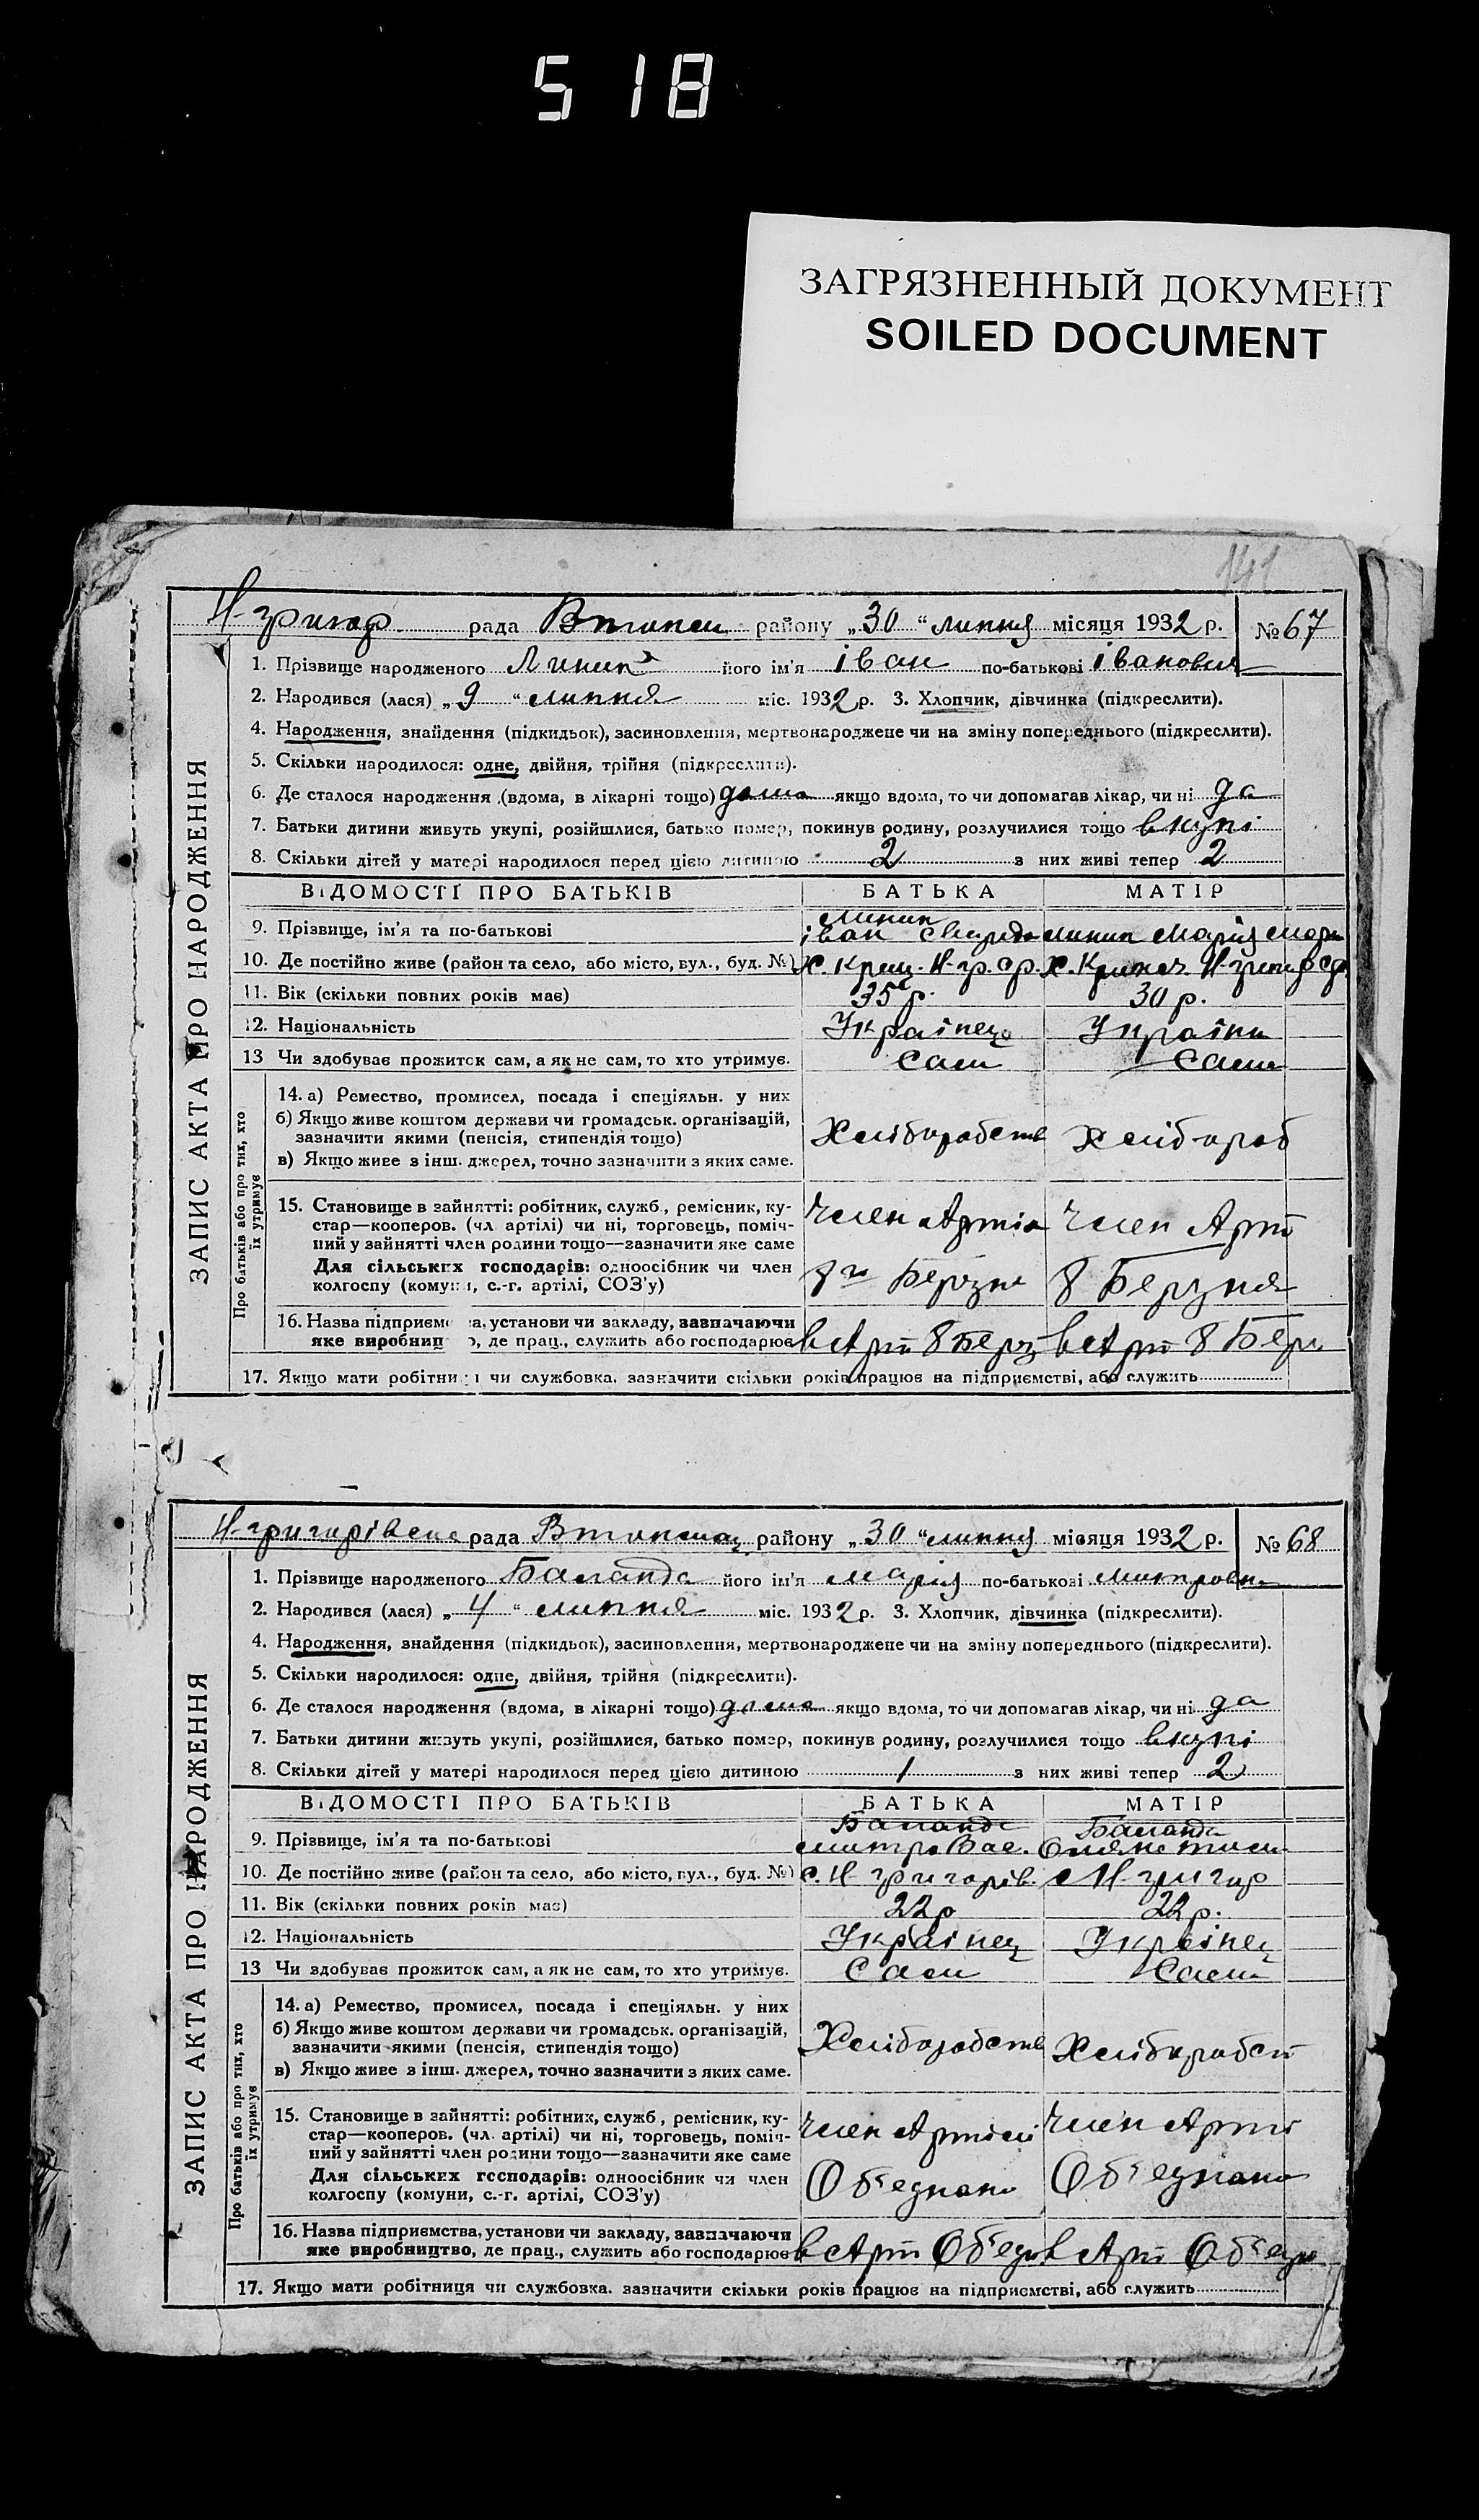 518
ЗАГРЯЗНЕННЫЙ ДОКУМЕНТ
SOILED DOCUMENT
141
ЗАПИС АКТА ПРО НАРОДЖЕННЯ
Н-григор. рада района „30“ липня місяця 1932 р. № 67
1. Прізвище народженого Линип його ім'я іван по-батькові івановия
2. Народився (лася) „9“ липня міс. 1932 р. 3. Хлопчик, дівчинка (підкреслити).
4. Народження, знайдення (підкидьок), засиновлення, мертвонароджене чи на зміну попереднього (підкреслити).
5. Скільки народилося: одне, двійня, трійня (підкреслити).
6. Де сталося народження (вдома, в лікарні тощо) дома якщо вдома, то чи допомагав лікар, чи ні да
7. Батьки дитини живуть укупі, розійшлися, батько помер, покинув родину, розлучилися тощо вкупі
8. Скільки дітей у матері народилося перед цією дитиною 2 з них живі тепер 2
ВІДОМОСТІ ПРО БАТЬКІВ БАТЬКА МАТІР
9. Прізвище, ім'я та по-батькові Линип іван линип Марія
10. Де постійно живе (район та село, або місто, вул., буд. №) Х. Н-гр. ср. Х. Н-григор ср.
11. Вік (скільки повних років має) 35 р. 30 р.
12. Національність Українец Україн
13 Чи здобуває прожиток сам, а як не сам, то хто утримує. Сам Сама
Про батьків або про тих, хто їх утримує
14. а) Ремество, промисел, посада і спеціяльн. у них
б) Якщо живе коштом держави чи громадськ. організацій,
зазначити якими (пенсія, стипендія тощо) Хліборобств Хлібороб
в) Якщо живе з інш. джерел, точно зазначити з яких саме.
15. Становище в зайнятті: робітник, служб., ремісник, ку-
стар—кооперов. (чл. артілі) чи ні, торговець, поміч- член Артіл член Арт
ний у зайнятті член родини тощо—зазначити яке саме
Для сільських господарів: одноосібник чи член
колгоспу (комуни, с.-г. артілі, СОЗ'у) 8го Березня 8 Березня
16. Назва підприємства, установи чи закладу, зазначаючи
яке виробниц , де прац., служить або господарює в Арт 8 Берз в Арт 8 Бер
17. Якщо мати робітниця чи службовка, зазначити скільки років працює на підприємстві, або служить
ЗАПИС АКТА ПРО НАРОДЖЕННЯ
Н-григорівска рада району „30“ липня місяця 1932 р. № 68
1. Прізвище народженого Баланда його ім'я Марія по-батькові Митровна
2. Народився (лася) „4“ липня міс. 1932 р. 3. Хлопчик, дівчинка (підкреслити).
4. Народження, знайдення (підкидьок), засиновлення, мертвонароджене чи на зміну попереднього (підкреслити).
5. Скільки народилося: одне, двійня, трійня (підкреслити).
6. Де сталося народження (вдома, в лікарні тощо) дома якщо вдома, то чи допомагав лікар, чи ні да
7. Батьки дитини живуть укупі, розійшлися, батько помер, покинув родину, розлучилися тощо вкупі
8. Скільки дітей у матері народилося перед цією дитиною 1 з них живі тепер 2
ВІДОМОСТІ ПРО БАТЬКІВ БАТЬКА МАТІР
9. Прізвище, ім'я та по-батькові Баланда Митро Вас. Баланда
10. Де постійно живе (район та село, або місто, вул., буд. №) с. Н-григорів. с Н-григор
11. Вік (скільки повних років має) 22 р 22 р.
12. Національність Українец Українец
13 Чи здобуває прожиток сам, а як не сам, то хто утримує. Сам Сама
Про батьків або про тих, хто їх утримує
14. а) Ремество, промисел, посада і спеціяльн. у них
б) Якщо живе коштом держави чи громадськ. організацій,
зазначити якими (пенсія, стипендія тощо) Хліборобств Хліборобст
в) Якщо живе з інш. джерел, точно зазначити з яких саме.
15. Становище в зайнятті: робітник, служб., ремісник, ку-
стар—кооперов. (чл. артілі) чи ні, торговець, поміч- член Артілі член Арті
ний у зайнятті член родини тощо—зазначити яке саме
Для сільських господарів: одноосібник чи член
колгоспу (комуни, с.-г. артілі, СОЗ'у) Об'єднано Об'єднано
16. Назва підприємства, установи чи закладу, зазначаючи
яке виробництво, де прац., служить або господарює в Арт Об'єдн в Арт Об'єдн
17. Якщо мати робітниця чи службовка, зазначити скільки років працює на підприємстві, або служить